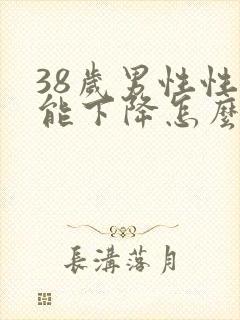 38歲男性性
能下降怎麼
長溝落月